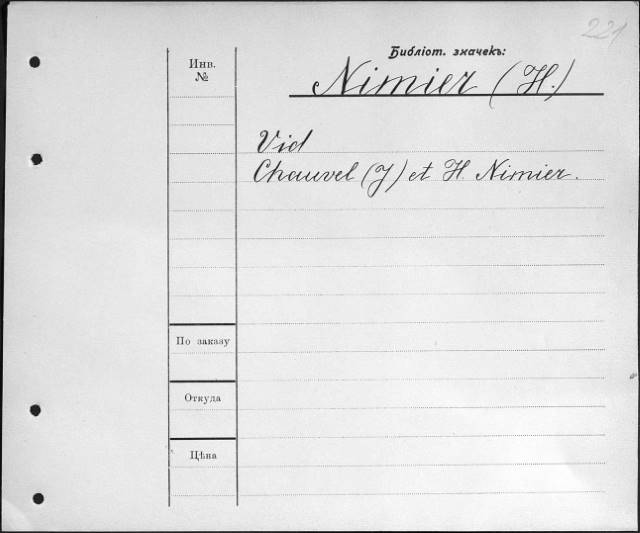 221
Библіот. значекъ:
Инв.
№
Nimier (H.)
Vid
Chauvel (J) et H. Nimier.
По заказу
Откуда
Цѣна